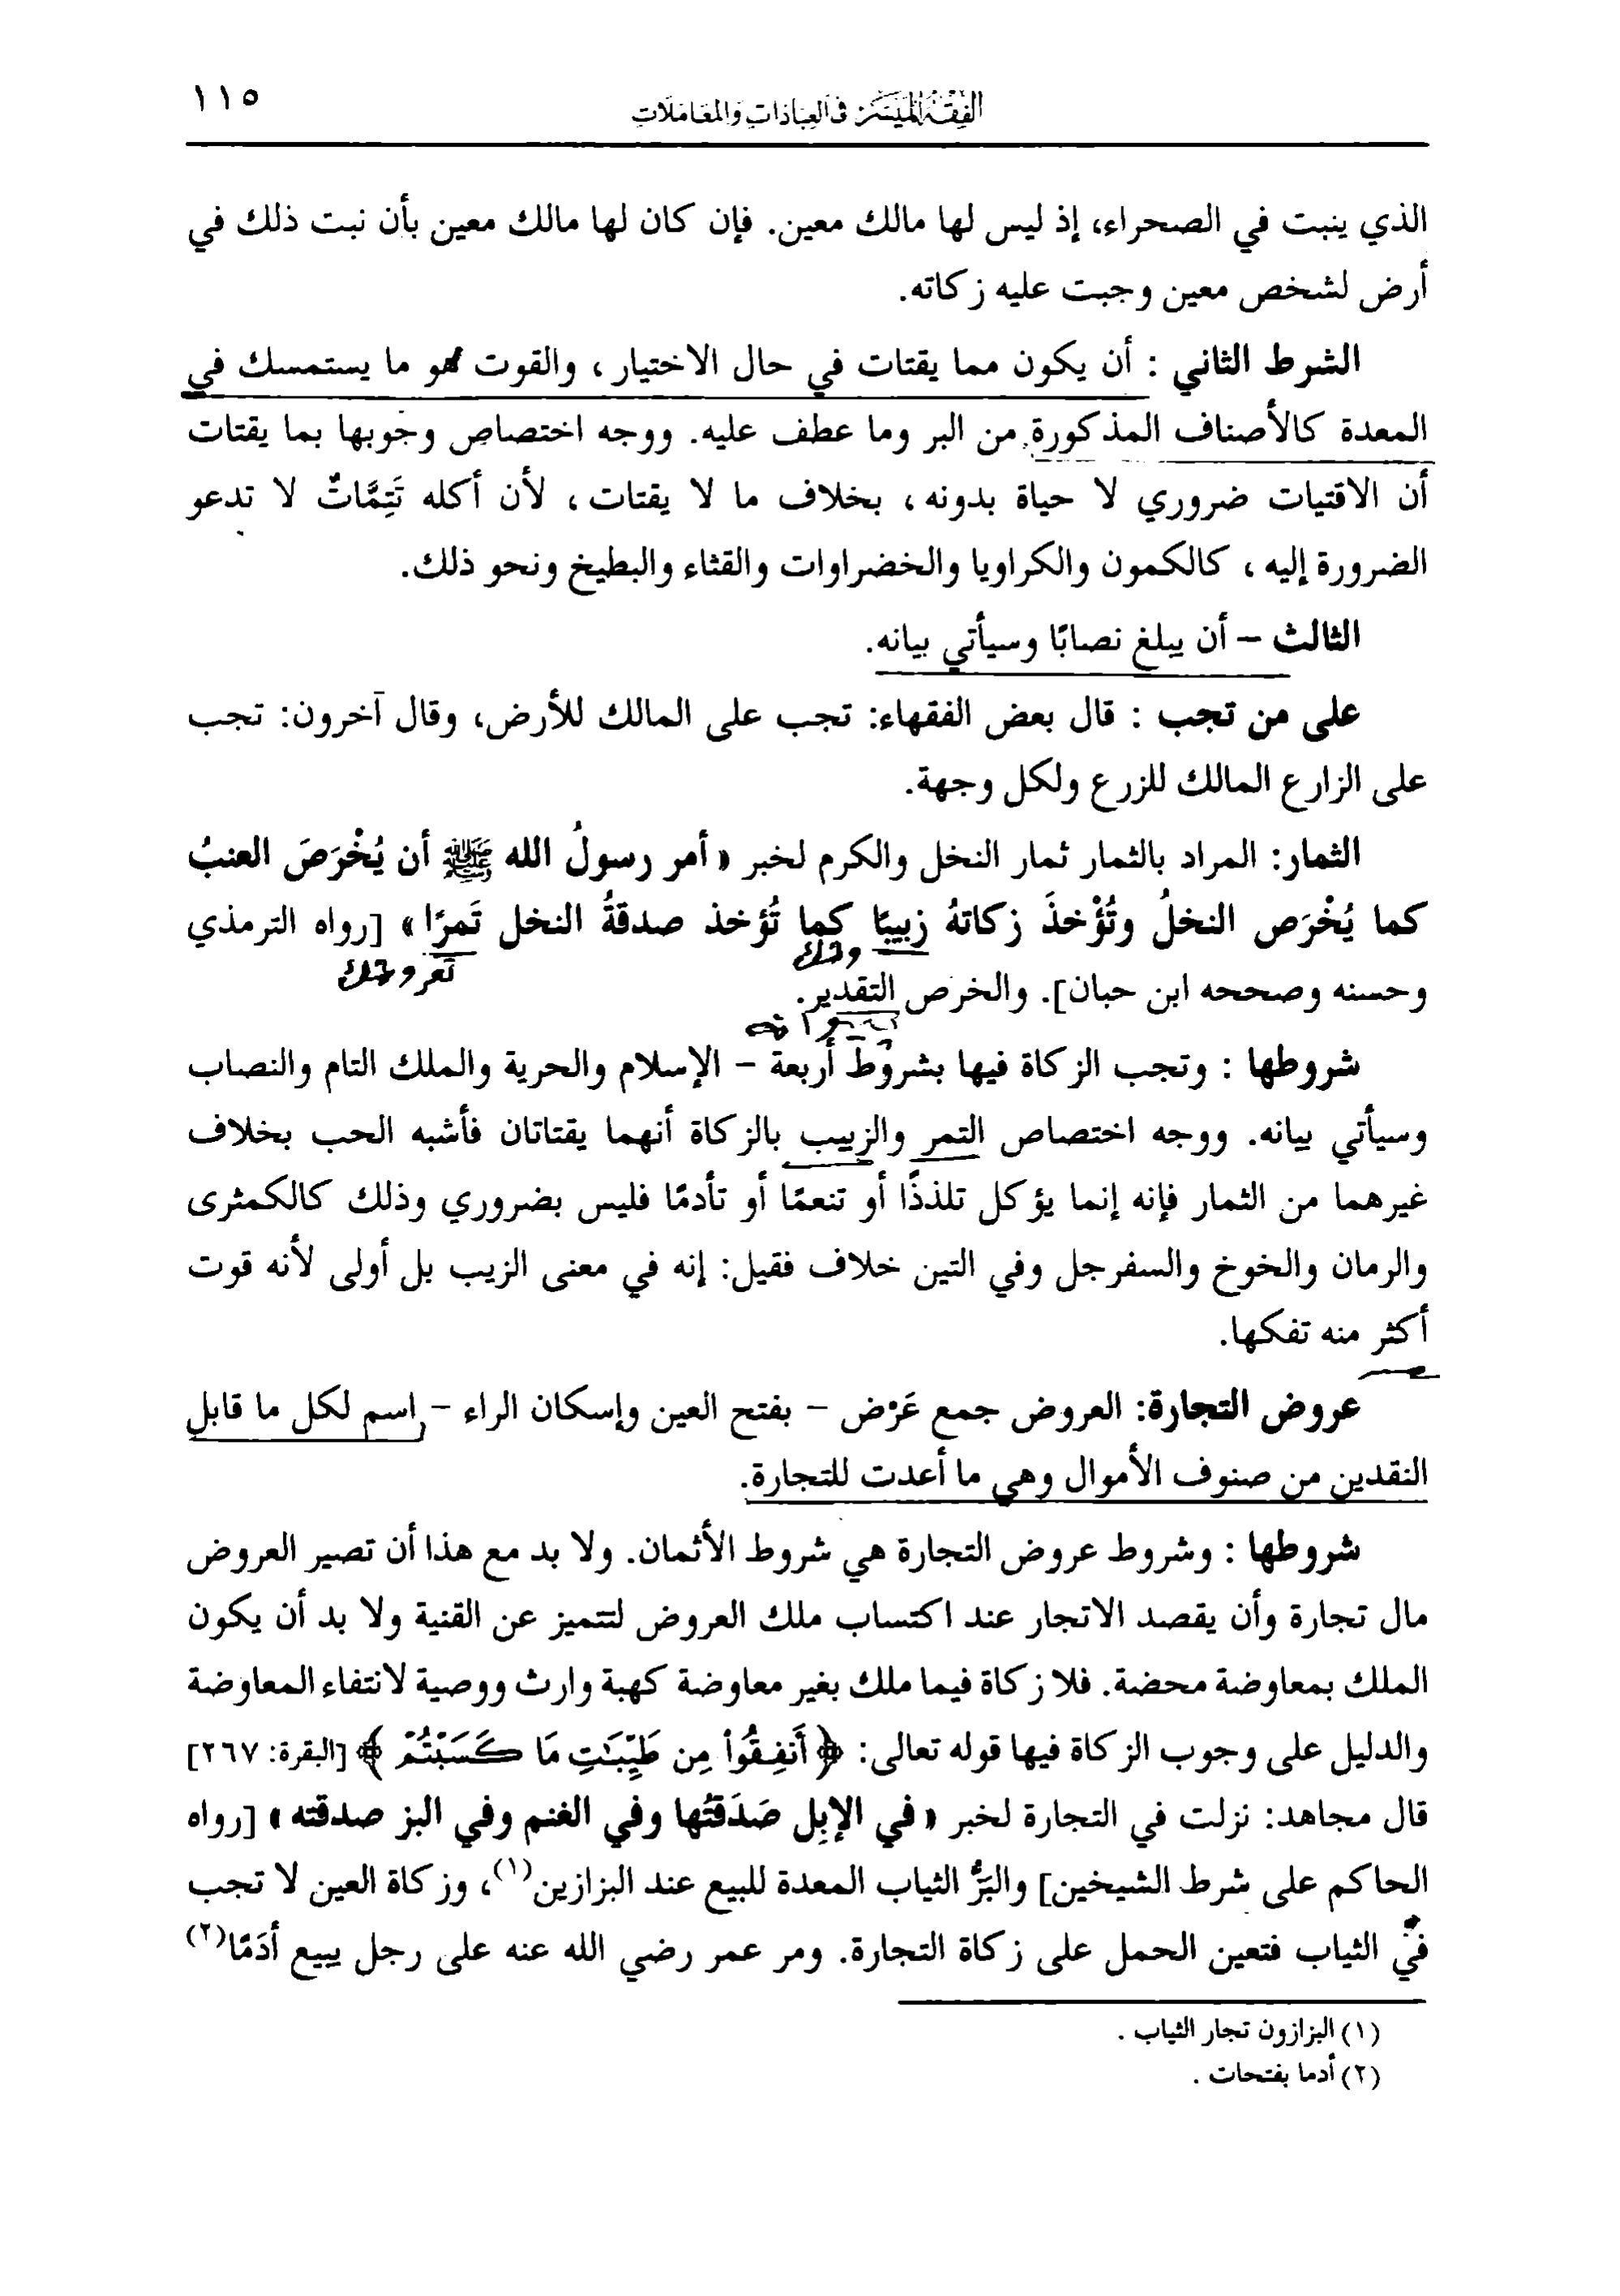 الفقه الميسر في العبادات والمعاملات ١١٥
الذي ينبت في الصحراء، إذ ليس لها مالك معين. فإن كان لها مالك معين بأن نبت ذلك في
أرض لشخص معين وجبت عليه زكاته.
الشرط الثاني : أن يكون مما يقتات في حال الاختيار ، والقوت هو ما يستمسك في
المعدة كالأصناف المذكورة من البر وما عطف عليه. ووجه اختصاص وجوبها بما يقتات
أن الاقتيات ضروري لا حياة بدونه ، بخلاف ما لا يقتات ، لأن أكله تَتِمَّاتٌ لا تدعو
الضرورة إليه ، كالكمون والكراويا والخضراوات والقثاء والبطيخ ونحو ذلك.
الثالث – أن يبلغ نصابًا وسيأتي بيانه.
على من تجب : قال بعض الفقهاء: تجب على المالك للأرض، وقال آخرون: تجب
على الزارع المالك للزرع ولكل وجهة.
الثمار: المراد بالثمار ثمار النخل والكرم لخبر « أمر رسولُ الله ﷺ أن يُخْرَصَ العنبُ
كما يُخْرَص النخلُ وتُؤْخذَ زكاتهُ زبيبًا كما تُؤخذ صدقةُ النخل تَمرًا » [رواه الترمذي
وحسنه وصححه ابن حبان]. والخرص التقدير.
شروطها : وتجب الزكاة فيها بشروط أربعة – الإسلام والحرية والملك التام والنصاب
وسيأتي بيانه. ووجه اختصاص التمر والزبيب بالزكاة أنهما يقتاتان فأشبه الحب بخلاف
غيرهما من الثمار فإنه إنما يؤكل تلذذًا أو تنعمًا أو تأدمًا فليس بضروري وذلك كالكمثرى
والرمان والخوخ والسفرجل وفي التين خلاف فقيل: إنه في معنى الزيب بل أولى لأنه قوت
أكثر منه تفكها.
عروض التجارة: العروض جمع عَرْض – بفتح العين وإسكان الراء – اسم لكل ما قابل
النقدين من صنوف الأموال وهي ما أعدت للتجارة.
شروطها : وشروط عروض التجارة هي شروط الأثمان. ولا بد مع هذا أن تصير العروض
مال تجارة وأن يقصد الاتجار عند اكتساب ملك العروض لتتميز عن القنية ولا بد أن يكون
الملك بمعاوضة محضة. فلا زكاة فيما ملك بغير معاوضة كهبة وارث ووصية لانتفاء المعاوضة
والدليل على وجوب الزكاة فيها قوله تعالى: ﴿ أَنفِقُوا۟ مِن طَيِّبَـٰتِ مَا كَسَبْتُمْ ﴾ [البقرة: ٢٦٧]
قال مجاهد: نزلت في التجارة لخبر « في الإبِل صَدَقَتُها وفي الغنم وفي البز صدقته » [رواه
الحاكم على شرط الشيخين] والبَزُّ الثياب المعدة للبيع عند البزازين(١)، وزكاة العين لا تجب
في الثياب فتعين الحمل على زكاة التجارة. ومر عمر رضي الله عنه على رجل يبيع أدَمًا(٢)
(١) البزازون تجار الثياب .
(٢) أدما بفتحات .